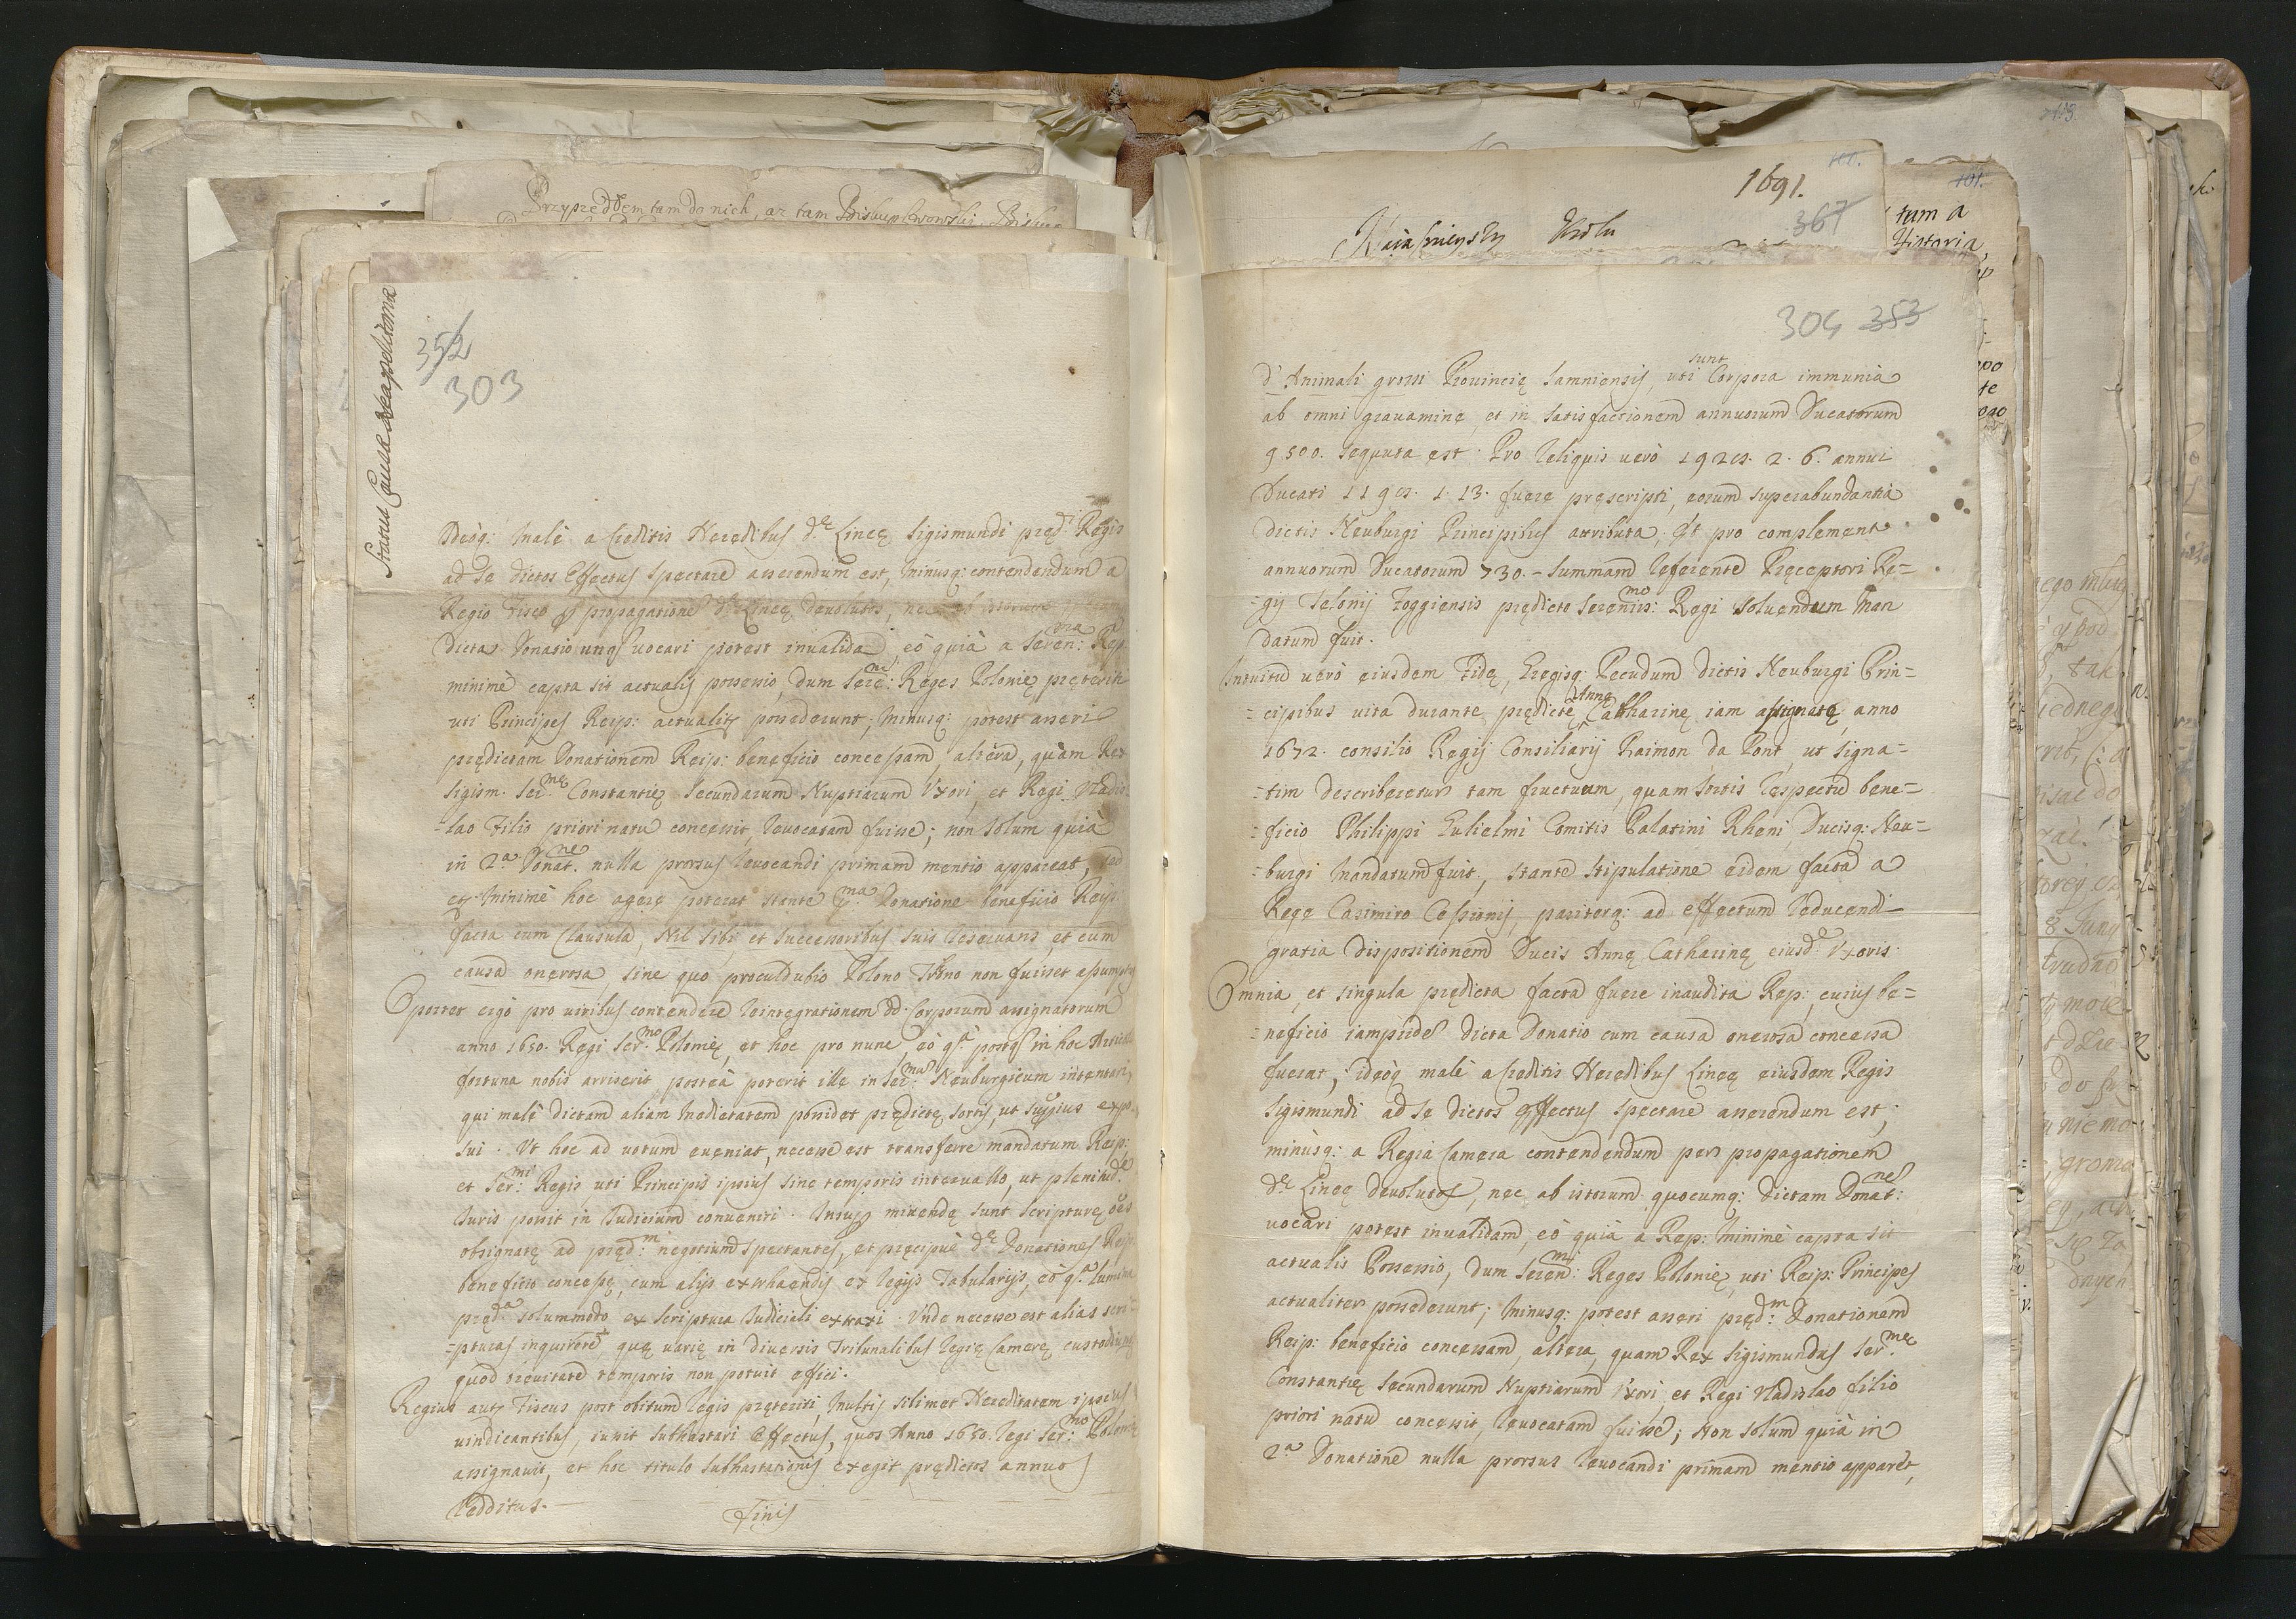 Przyszedłem tam do nich, az tam Biskup Lwowski, Biskup
Status Causæ Neapolitanæ
352
303
Ideoq: malè a Creditis Heredibus d.ę Lineę Sigismundi pręd.i Regis
ad se dictos Effectus spectare asserendum est, minusq: contendendum a
Regio Fisco propagatione d.ę Lineę devolutos, nec ab istorum
dicta Donatio unq vocari potest invalida, eò quià a Seren:ma Rep.
minimè capta sit actualis possessio, dum Sere:mi Reges Polonię
uti Principes Reip: actualitr possederunt; minusq: potest asseri
prędictam Donationem Reip: beneficio concessam, alterà, quàm Rex
Sigism. Ser:mę Constantię Secundarum Nuptiarum Uxori, et Regi Vladis-
-lao Filio priori natu concessit revocatam fuisse; non solum quià
in 2.a Donat.ne nulla prorsus revocandi primam mentio appareat, sed
et minimè hoc agere poterat stante 1.ma Donatione beneficio Reip:
facta cum Clausula, Nil sibi et Successoribus suis reservans, et cum
causa onerosa, sine quo proculdubio Polono Thrno non fuisset assumptus
Oportet ergò pro viribus contendere reintegrationem dd. Corporum assignatorum
anno 1650. Regi Ser:mo Polonię, et hoc pro nunc, eò q.a postq in hoc
fortuna nobis arriserit posteà poterit ille in Ser:mum Neuburgicum intentari,
qui malè dictam aliam medietatem possidet prędictę sortis, ut supius expo-
sui. Ut hoc ad votum eveniat, necesse est transferre mandatum Reip:
et Ser:mi Regis uti Principis ipsius sine temporis intervallo, ut plenitud.e
Iuris possit in Iudicium conveniri. Insup mittendę sunt scripturę oes
obsignatę ad pręd:m negotium spectantes, et pręcipuè d.ę Donationes Reip:
beneficio concessę, cum alijs extrahendis ex regijs Tabularijs, eò q.a lumina
pręd.a solummodo ex scriptura Iudiciali extraxi. Unde necesse est alias scri-
-pturas inquirere, quę varię in diversis Tribunalibus regię Camerę custodiuntur
quod brevitate temporis non potuit effici.
Regius aut Fiscus post obitum regis pręteriti, multis sibimet Hereditatem ipsius
vindicantibus, iussit subhastari Effectus, quos Anno 1650. regi Ser:mo Polonię
assignavit, et hoc titulo subhastationis exegit prędictos annuos
redditus.
Finis
113.
101.
1691.
367
Naiaśnieyszy Królu
101.
tum a
Historia,
304 353
d'Animali grossi Provincię Samniensis, uti sunt Corpora immunia
ab omni gravamine, et in satisfactionem annuorum Ducatorum
9500. sequuta est. Pro reliquis verò 192cs. 2. 6. annui
Ducati 119cs. 1. 13. fuere pręscripti, eorum superabundantia
dictis Neuburgi Principibus attributa, et pro complement
annuorum Ducatorum 730. - summam referente Pręceptori Re-
-gij Telonij Foggiensis prędicto Sereniis:mo Regi solvendum man
datum fuit.
Intuitu verò eiusdem Fidę, Gregisq: Pecudum dictis Neuburgi Prin-
-cipibus vita durante prędictę Annę Catharinę iam assignatę, anno
1672. consilio Regij Consiliarij Raimon da Pont, ut signa-
-tim describeretur tam fructuum, quam sortis respectu bene-
-ficio Philippi Gulielmi Comitis Palatini Rheni, Ducisq: Neu-
-burgi mandatum fuit, stante stipulatione eidem facta a
Rege Casimiro Cessionis, pariterq: ad effectum reducendi
gratia dispositionem Ducis Annę Catharinę eiusd.ę Uxoris.
Omnia, et singula prędicta facta fuere inaudita Rep: cuius be-
-neficio iampridè dicta Donatio cum causa onerosa concessa
fuerat, ideòq malè a Creditis Heredibus Lineę eiusdem Regis
Sigismundi ad se dictos effectus spectare asserendum est,
minùsq: a Regia Camera contendendum per propagationem
d.ę Lineę devolutos, nec ab istorum quocumq: dictam Donat:nem
vocari potest invalidam, eò quià à Rep: minimè capta sit
actualis Possessio, dum Seren:mi Reges Polonię, uti Reip: Principes
actualiter possederunt; minusq: potest asseri pręd:m Donationem
Reip: beneficio concessam, altera, quam Rex Sigismundus Ser:mę
Constantię Secundarum Nuptiarum Uxori, et Regi Vladislao filio
priori natu concessit, revocatam fuisse; Non solum quià in
2.a Donatione nulla prorsus revocandi primam mentio apparet,